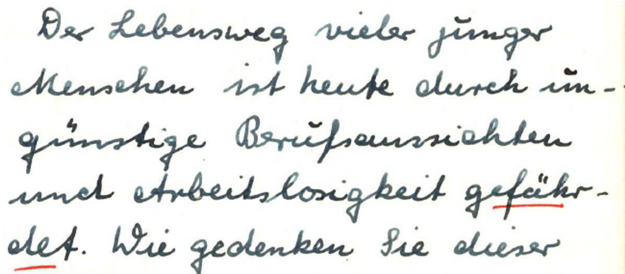 Der Lebensweg vieler junger
Menschen ist heute durch un-
günstige Berufsaussichten
und Arbeitslosigkeit gefähr-
det. Wie gedenken Sie dieser